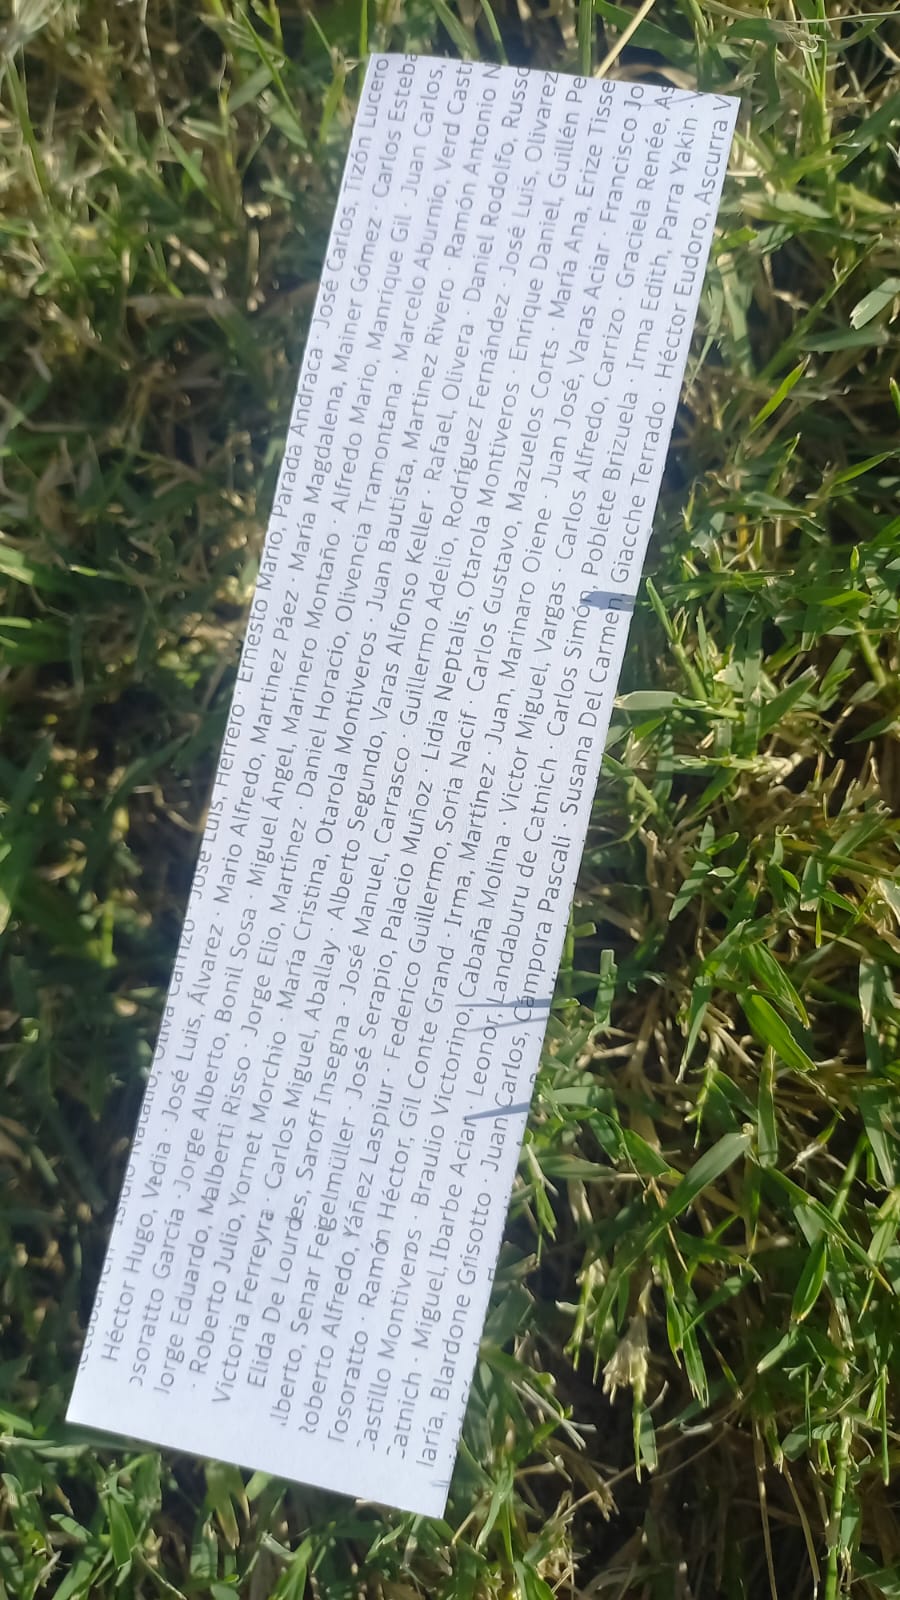 Natalio, Oliva Carrizo · José Luis, Herrero · Ernesto Mario, Parada Andraca · José Carlos, Tizón Lucero
Héctor Hugo, Vedia · José Luis, Álvarez · Mario Alfredo, Martínez Páez · María Magdalena, Mainer Gómez · Carlos Esteba
osoratto García · Jorge Alberto, Bonil Sosa · Miguel Ángel, Marinero Montaño · Alfredo Mario, Manrique Gil · Juan Carlos,
Jorge Eduardo, Malberti Risso · Jorge Elio, Martínez · Daniel Horacio, Olivencia Tramontana · Marcelo Aburnio, Verd Cast
· Roberto Julio, Yornet Morchio · María Cristina, Otarola Montiveros · Juan Bautista, Martinez Rivero · Ramón Antonio N
Victoria Ferreyra · Carlos Miguel, Aballay · Alberto Segundo, Varas Alfonso Keller · Rafael, Olivera · Daniel Rodolfo, Russo
Elida De Lourdes, Saroff Insegna · José Manuel, Carrasco · Guillermo Adelio, Rodríguez Fernández · José Luis, Olivarez
lberto, Senar Fegelmüller · José Serapio, Palacio Muñoz · Lidia Neptalis, Otarola Montiveros · Enrique Daniel, Guillén Pe
Roberto Alfredo, Yáñez Laspiur · Federico Guillermo, Soria Nacif · Carlos Gustavo, Mazuelos Corts · María Ana, Erize Tisse
Tosoratto · Ramón Héctor, Gil Conte Grand · Irma, Martínez · Juan, Marinaro Oiene · Juan José, Varas Aciar · Francisco Jo
Castillo Montiveros · Braulio Victorino, Cabaña Molina · Víctor Miguel, Vargas · Carlos Alfredo, Carrizo · Graciela Renée, As
Catnich · Miguel, Ibarbe Acian · Leonor, Landaburu de Catnich · Carlos Simón, Poblete Brizuela · Irma Edith, Parra Yakin ·
laría, Blardone Grisotto · Juan Carlos, Cámpora Pascali · Susana Del Carmen, Giacche Terrado · Héctor Eudoro, Ascurra V